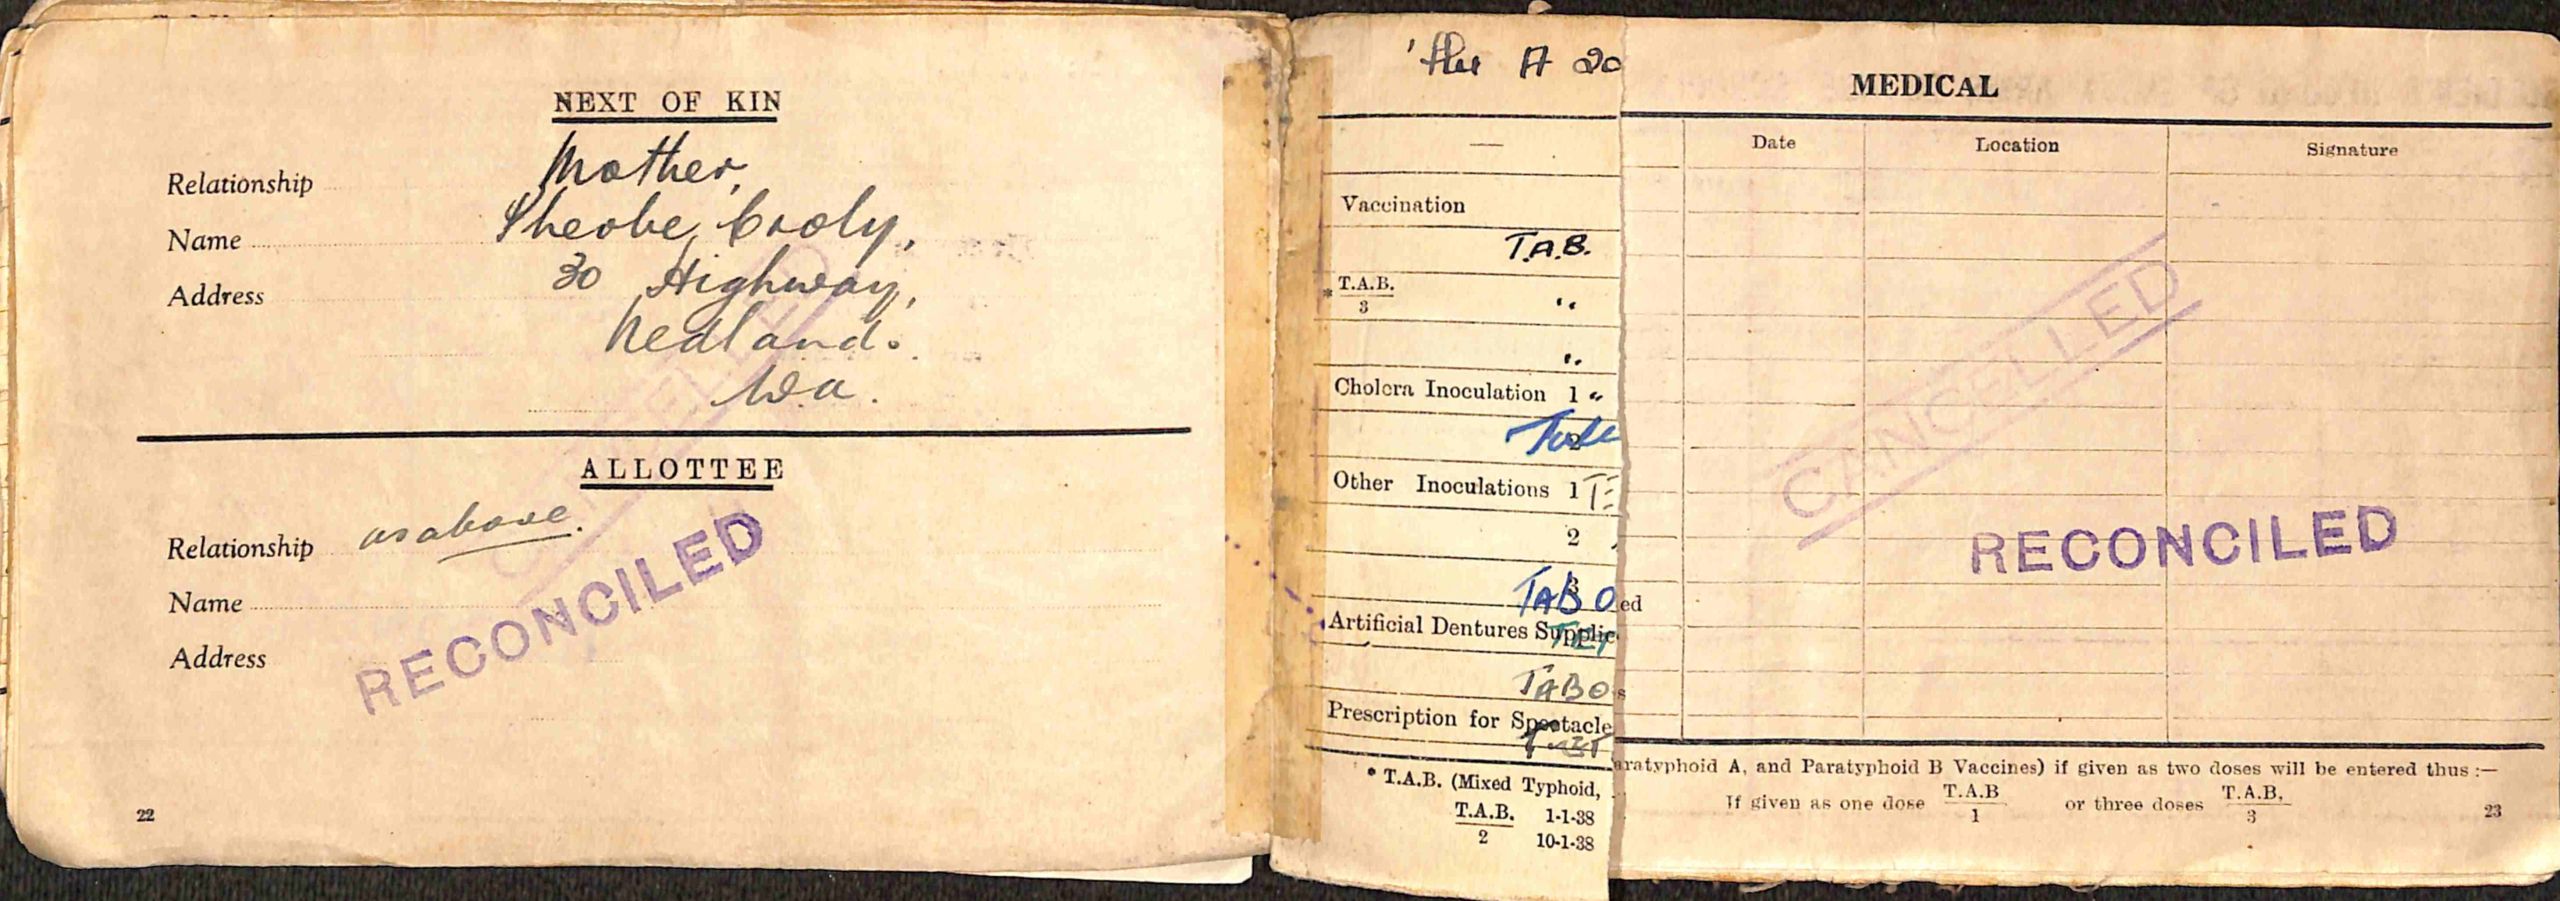 NEXT OF KIN
Relationship Mother,
Name Pheobe Croly,
Address 30 Highway,
Nedland.
Wa.
ALLOTTEE
Relationship as above.
Name
Address
CANCELLED
RECONCILED
22
the A 20
Vaccination
T.A.B.
* T.A.B. "
3
"
Cholera Inoculation 1 "
2
Other Inoculations 1 TE
2
3
TABO
Artificial Dentures Supplie
TET
TABO
Prescription for Spectacle
* T.A.B. (Mixed Typhoid,
T.A.B. 1-1-38
2 10-1-38
MEDICAL
Date Location Signature
CANCELLED
RECONCILED
ed
s
aratyphoid A, and Paratyphoid B Vaccines) if given as two doses will be entered thus :—
If given as one dose T.A.B or three doses T.A.B.
1 3
23